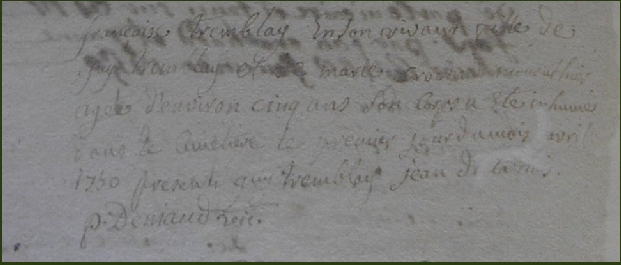 françoise tremblay En Son vivant fille de
guy tremblay et de marie
agée d'environ cinq ans Son Corps a Eté inhumé
dans le Cimetiere le premier jour du mois
1750 presents guy tremblay jean
p. Deniaud